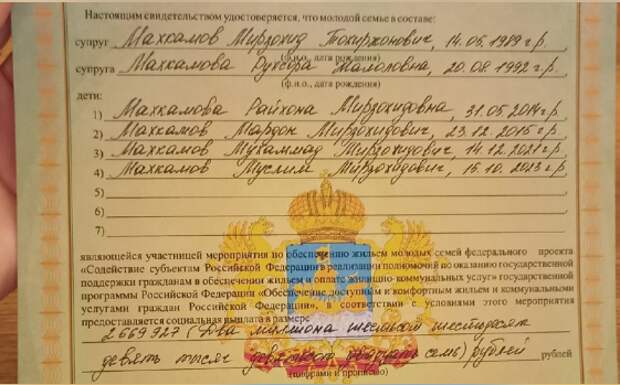 Настоящим свидетельством удостоверяется, что молодой семье в составе:
супруг Махкамов Мирзохид Тохиржонович, 14.05.1989 г.р.
(ф.и.о., дата рождения)
супруга Махкамова Рухсора Жалоловна, 20.08.1992 г.р.
(ф.и.о., дата рождения)
дети:
1) Махкамова Райхона Мирзохидовна, 31.05.2014 г.р.
2) Махкамов Мардон Мирзохидович, 23.12.2015 г.р.
3) Махкамов Мухаммад Мирзохидович, 14.12.2021 г.р.
4) Махкамов Муслим Мирзохидович, 15.10.2023 г.р.
5)
6)
7)
являющейся участницей мероприятия по обеспечению жильем молодых семей федерального проекта
«Содействие субъектам Российской Федерации в реализации полномочий по оказанию государственной
поддержки гражданам в обеспечении жильем и оплате жилищно-коммунальных услуг» государственной
программы Российской Федерации «Обеспечение доступным и комфортным жильем и коммунальными
услугами граждан Российской Федерации», в соответствии с условиями этого мероприятия
предоставляется социальная выплата в размере
2 669 927 (два миллиона шестьсот шестьдесят
девять тысяч девятьсот двадцать семь) рублей рублей
(цифрами и прописью)